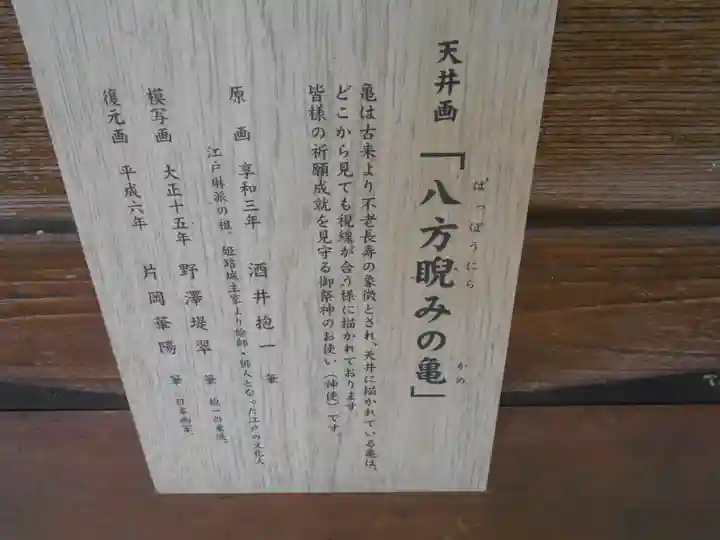 天井画「八方睨みの亀」
ばっぽうにら
かめ
亀は古来より不老長寿の象徴とされ、天井に描かれている亀は、
どこから見ても視線が合う様に描かれております。
皆様の祈願成就を見守る御祭神のお使い(神使)です。
原画 享和三年 酒井抱一 筆
江戸琳派の祖。姫路城主家より絵師・俳人となった江戸の文化人
模写画 大正十五年 野澤堤翠 筆 抱一の垂流。
復元画 平成六年 片岡華陽 筆 日本画家。